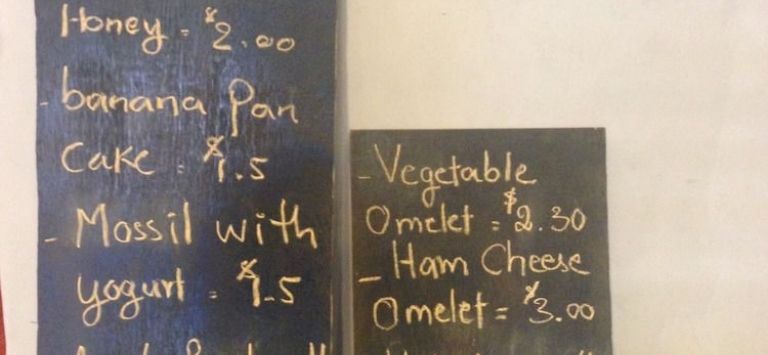 Honey = $2.00
- banana Pan
Cake = $1.5
- Mossil with
yogurt = $1.5
- Vegetable
Omelet = $2.30
- Ham Cheese
Omelet = $3.00